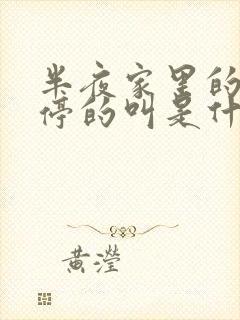 半夜家里的
停的叫是什
黄滢